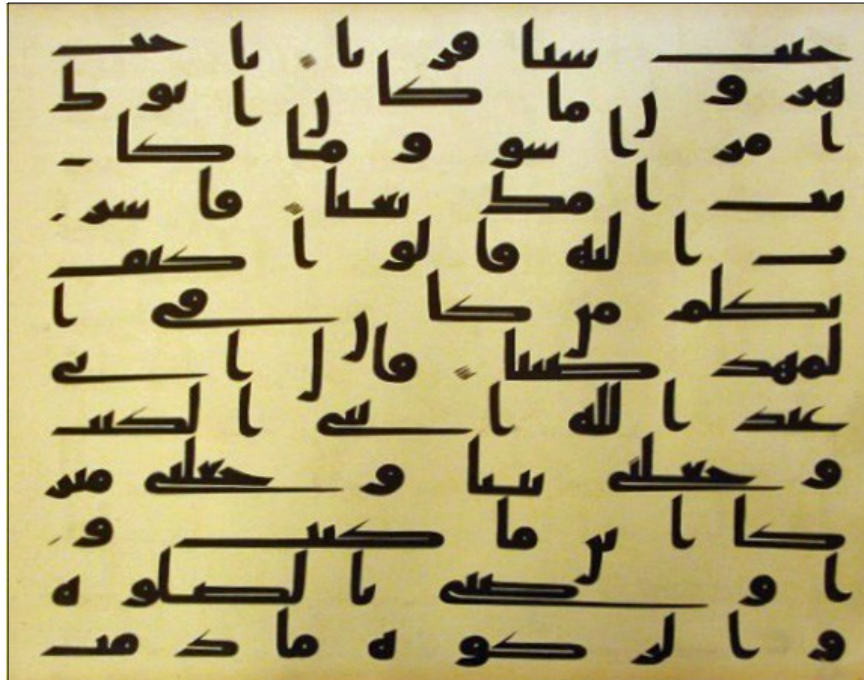 جئت شيا فريا يا خت
هرون ما كان ابوك
امرا سو وما كا
نت امك بغيا فاشر
ت اليه قالوا كيف
نكلم من كان في ا
لمهد صبيا قال اني
عبد الله اتني الكتب
وجعلني نبيا وجعلني مبر
كا اين ما كنت و
اوصني بالصلوه
والزكوه ما دمت